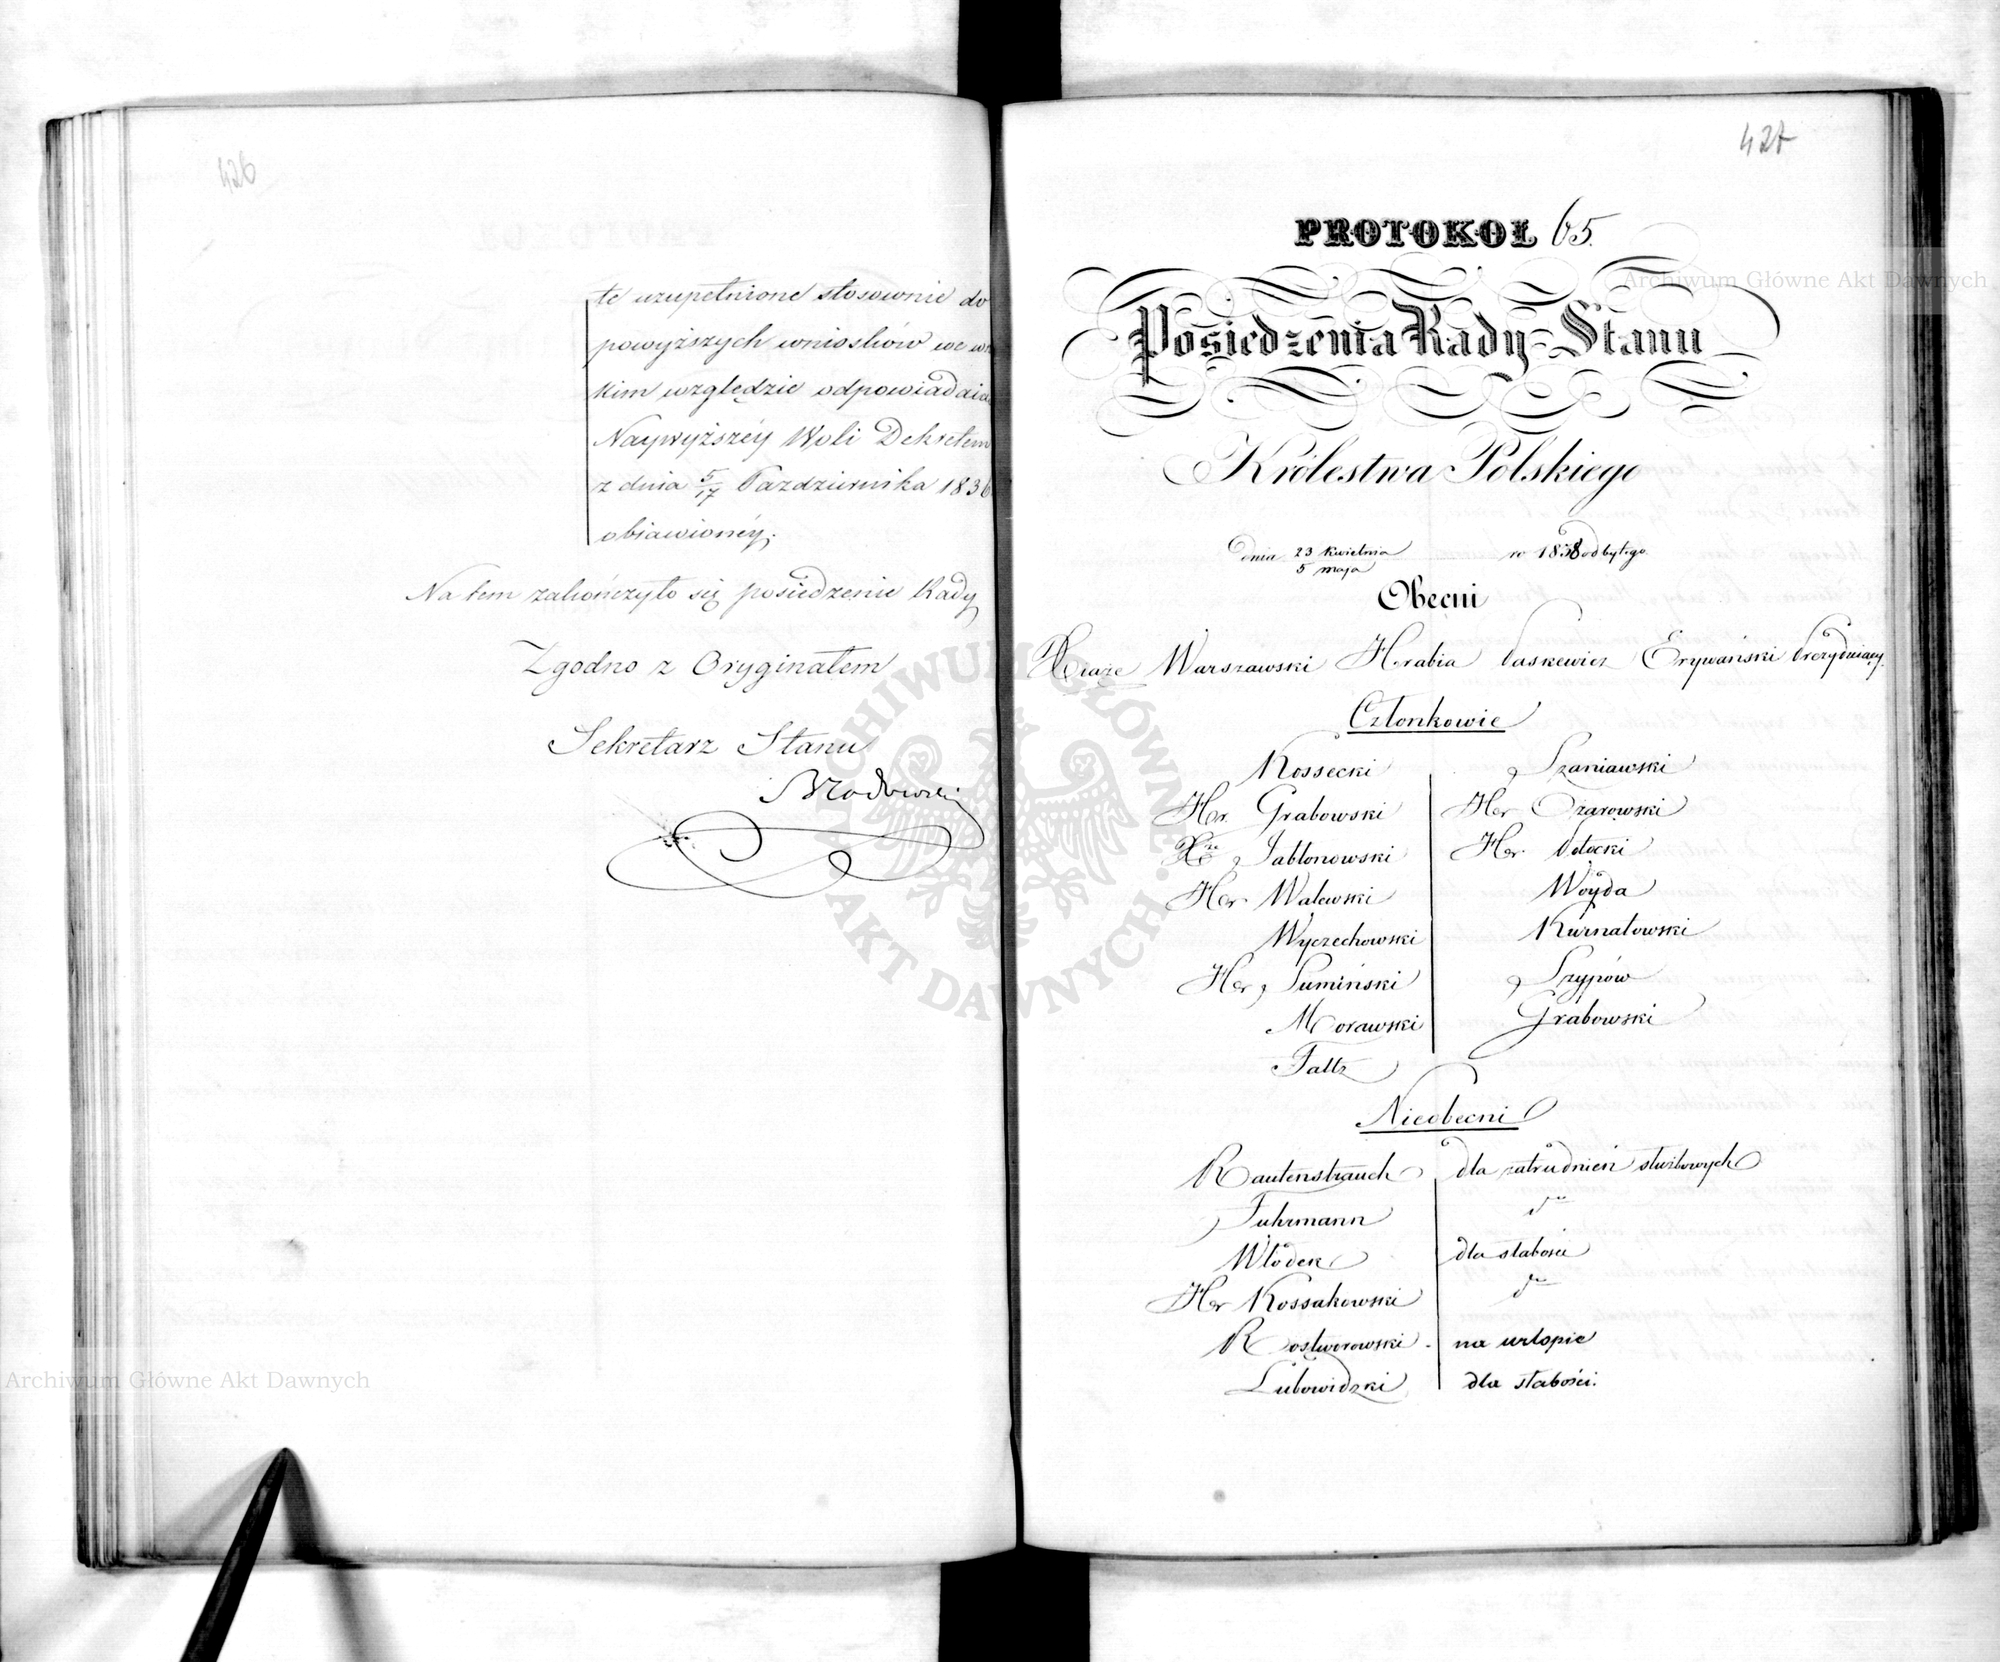 426
te uzupełnione stosownie do
powyższych wniosków we
kim względzie odpowiadaią
Naywyższéy Woli Dekretem
z dnia 5/17 Pazdziernika 1836
obiawionéy.
Na tem zakończyło się posiedzenie Rady
Zgodno z Oryginałem
Sekretarz Stanu
427
PROTOKOŁ 65.
Posiedzenia Rady Stanu
Królestwa Polskiego
dnia 23 Kwietnia / 5 maja ro 1838 odbytego.
Obecni
Xiąże Warszawski Hrabia Paskewicz Erywański Prezydniący.
Członkowie
Kossecki
Hr. Grabowski
Xże Jabłonowski
Hr. Walewski
Wyczechowski
Hr. Sumiński
Morawski
Faltz
Szaniawski
Hr Ożarowski
Hr. Potocki
Woyda
Kurnatowski
Szypów
Grabowski
Nieobecni
Rautenstrauch dla zatrudnień służbowych
Fuhrmann do
Włodek dla słabości
Hr Kossakowski do
Rostworowski na urlopie
Lubowidzki dla słabości.
Archiwum Główne Akt Dawnych
Archiwum Główne Akt Dawnych
ARCHIWUM GŁÓWNE AKT DAWNYCH